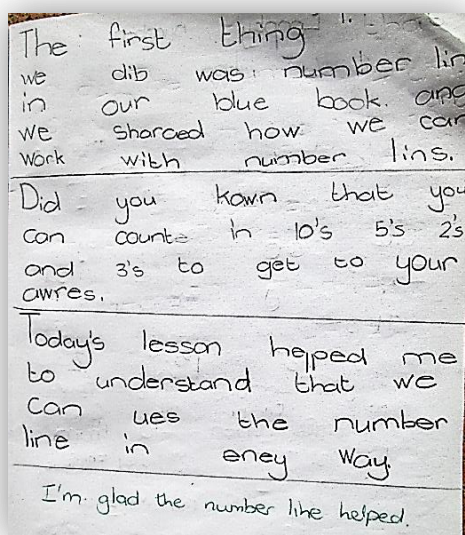 The first thing
we dib was number lin
in our blue book. and
we sharced how we can
work with number lins.
Did you kown that you
can count in 10's 5's 2's
and 3's to get to your
awres.
Today's lesson helped me
to understand that we
can ues the number
line in eney way.
I'm glad the number line helped.